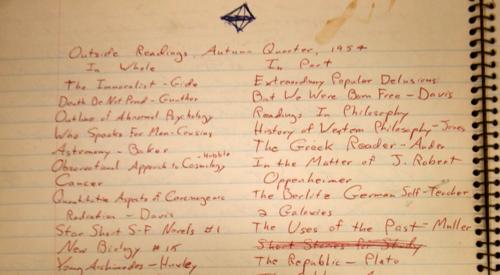 Outside Readings, Autumn Quarter, 1954
In Whole
The Immoralist - Gide
Death Be Not Proud - Gunther
Outline of Abnormal Psychology
Who Speaks For Man - Cousins
Astronomy - Baker
Observational Approach to Cosmology - Hubble
Cancer
Quantitative Aspects of Carcinogenic
Radiation - Davis
Star Short S-F Novels #1
New Biology #15
Young Archimedes - Huxley
In Part
Extraordinary Popular Delusions
But We Were Born Free - Davis
Readings In Philosophy
History of Western Philosophy - Jones
The Greek Reader -
In the Matter of J. Robert
Oppenheimer
The Berlitz German Self-Teacher
2 Galaxies
The Uses of the Past - Muller
Short Stories for Study
The Republic - Plato